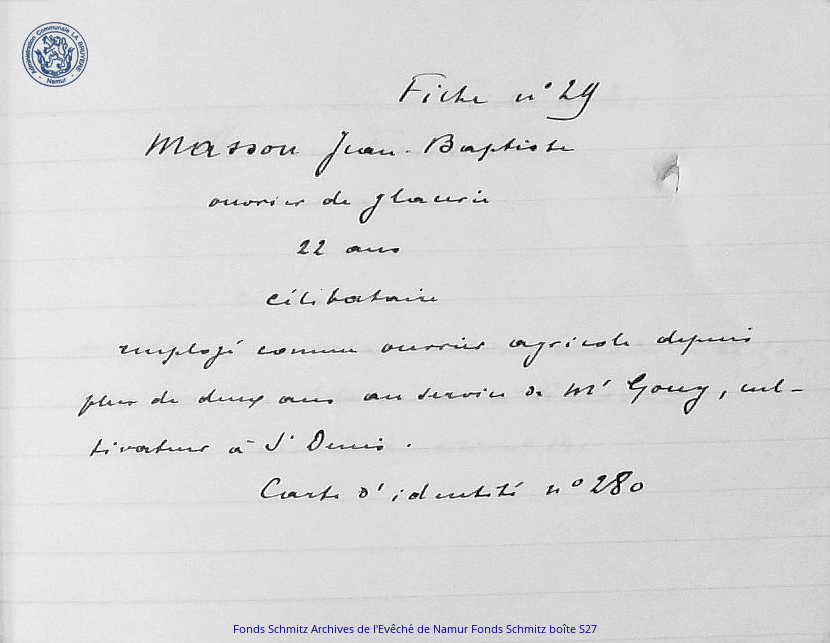 Administration Communale LA BRUYERE
- Namur -
Fiche n° 29
Masson Jean-Baptiste
ouvrier de glacerie
22 ans
célibataire
employé comme ouvrier agricole depuis
plus de deux ans au service de Mr Gouy, cul-
tivateur à St Denis.
Carte d'identité n° 280
Fonds Schmitz Archives de l'Evêché de Namur Fonds Schmitz boîte S27